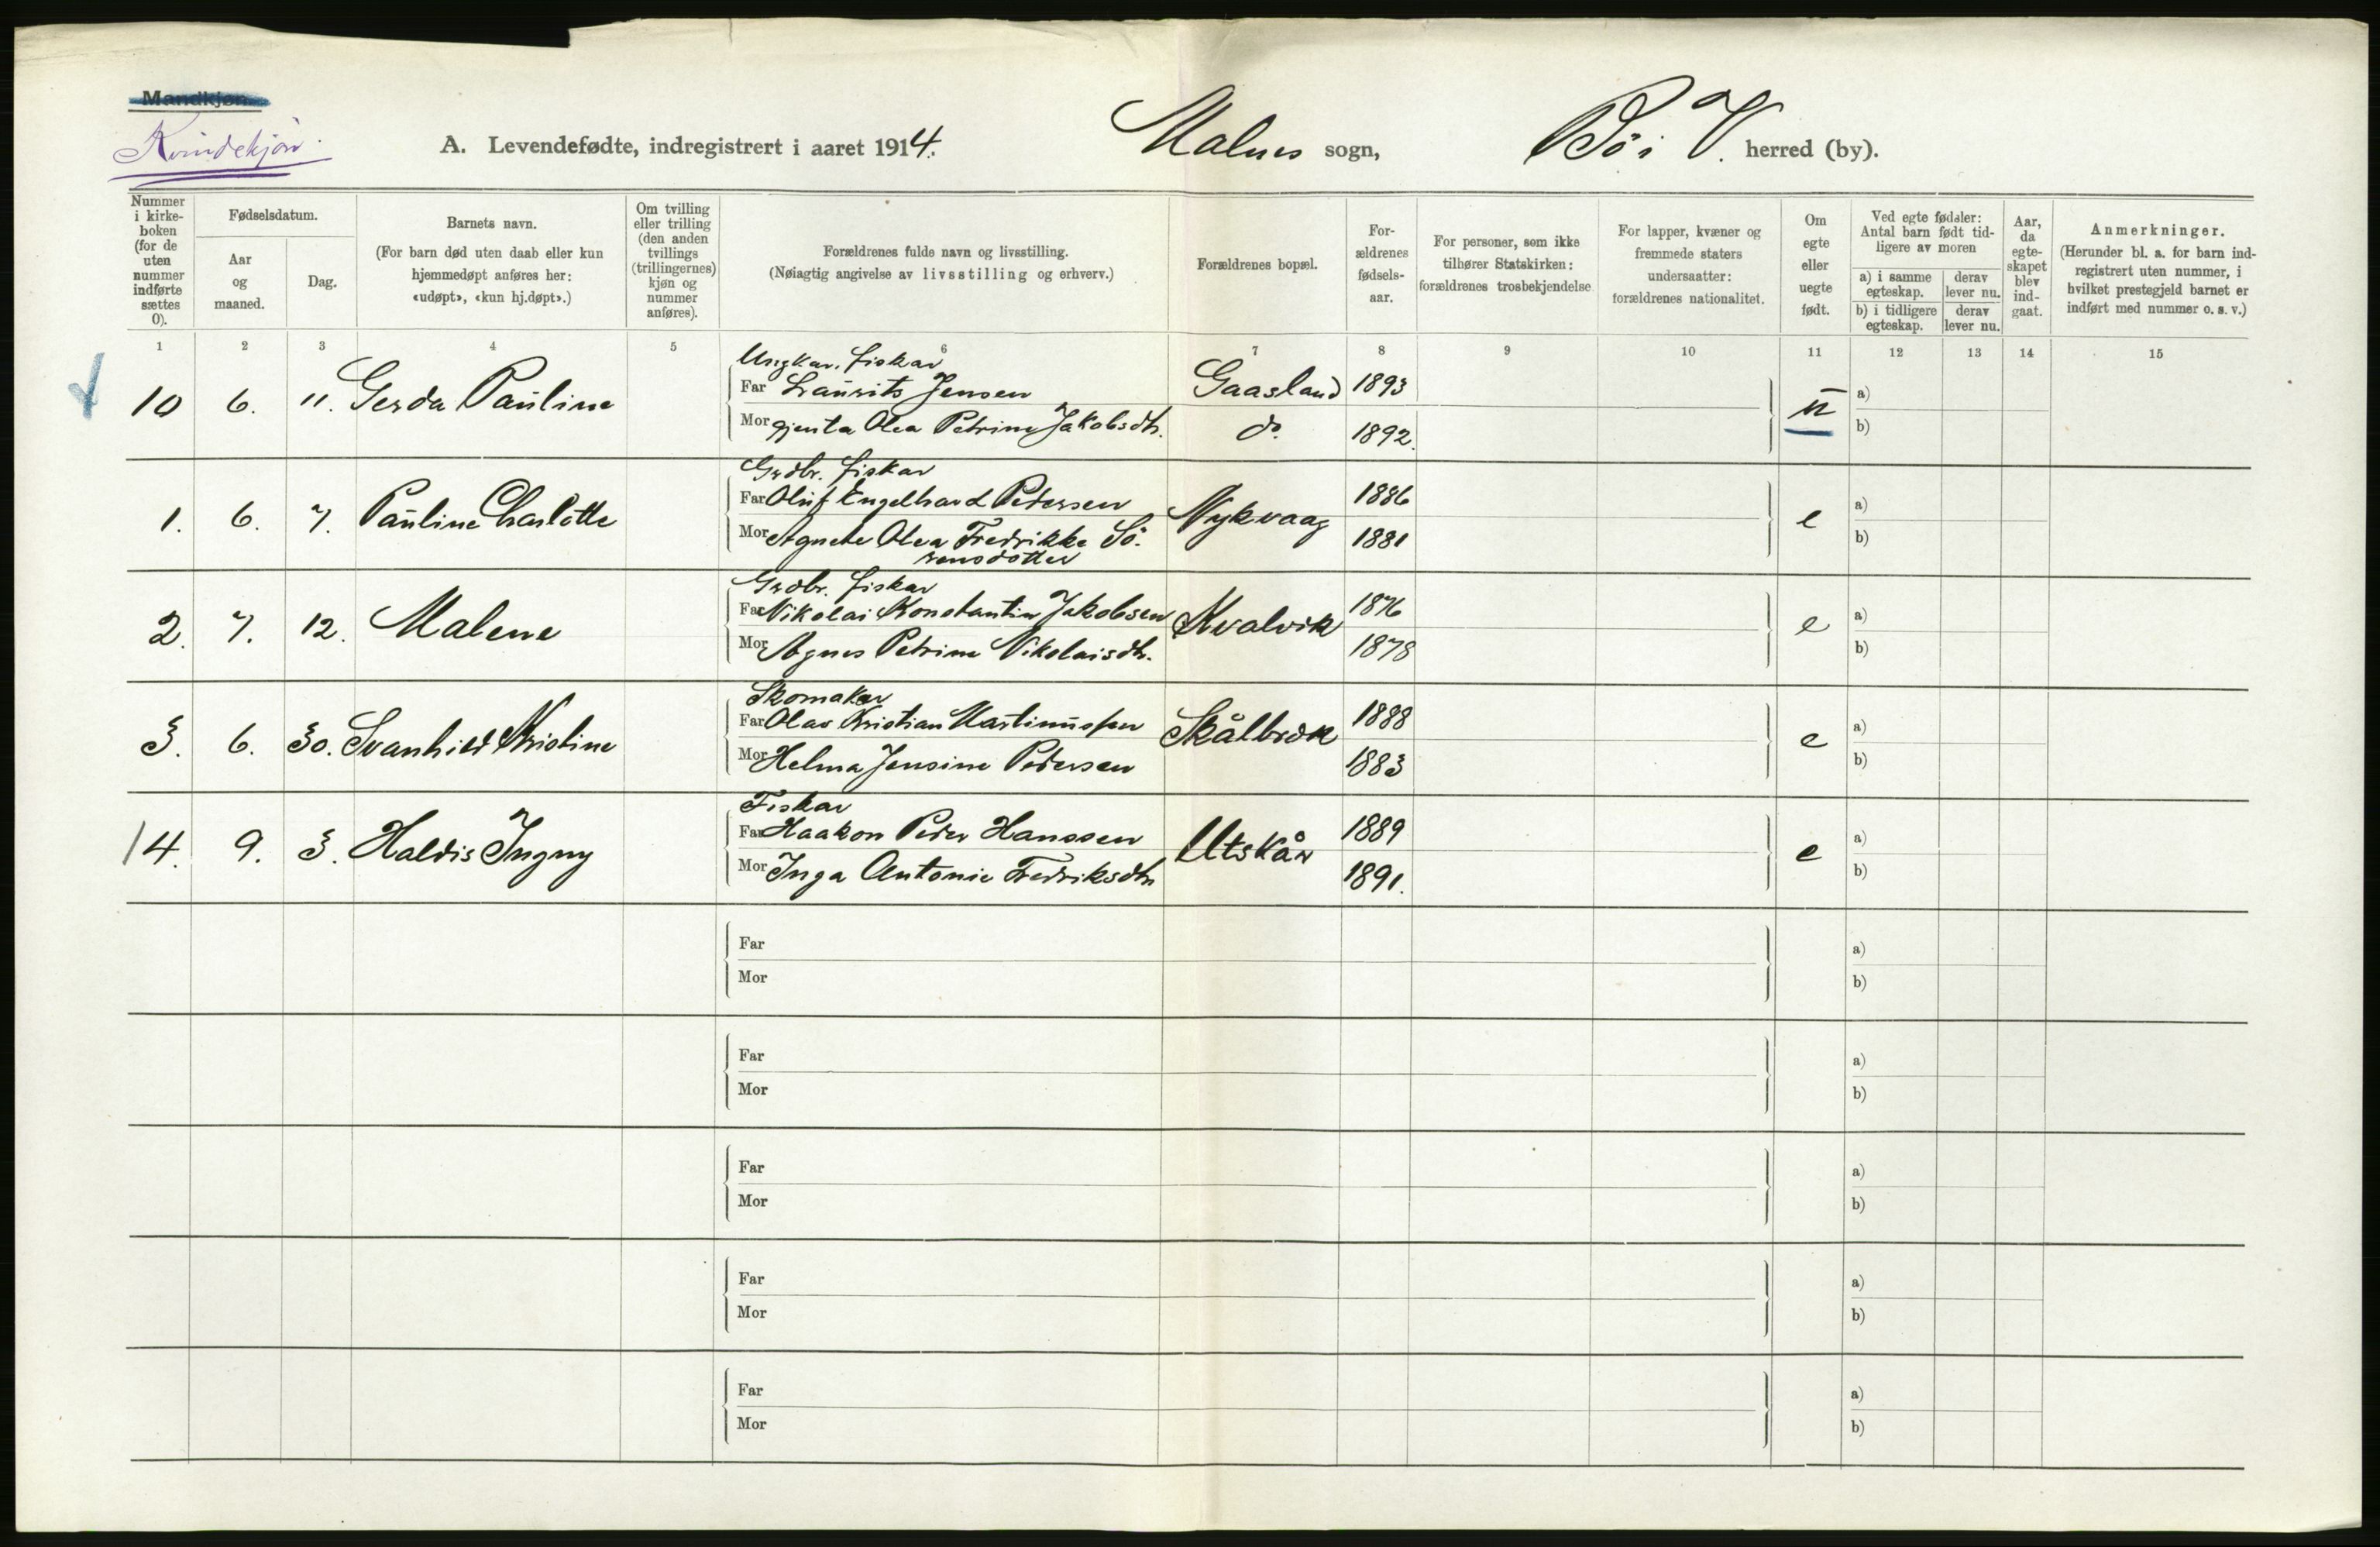 Mandkjøn.
Kvindekjøn.
A. Levendefødte, indregistrert i aaret 1914.
Malnes sogn,
Bö i V. herred (by).
Nummer i kirke-boken (for de uten nummer indførte sættes 0).
Fødselsdatum.
Aar og maaned.
Dag.
Barnets navn.
(For barn død uten daab eller kun hjemmedøpt anføres her: «udøpt», «kun hj.døpt».)
Om tvilling eller trilling (den anden tvillings (trillingernes) kjøn og nummer anføres).
Forældrenes fulde navn og livsstilling.
(Nøiagtig angivelse av livsstilling og erhverv.)
Forældrenes bopæl.
For-ældrenes fødsels-aar.
For personer, som ikke tilhører Statskirken: forældrenes trosbekjendelse
For lapper, kvæner og fremmede staters undersaatter: forældrenes nationalitet.
Om egte eller uegte født.
Ved egte fødsler: Antal barn født tid-ligere av moren
a) i samme egteskap.
derav lever nu.
b) i tidligere egteskap.
derav lever nu.
Aar, da egte-skapet blev ind-gaat.
Anmerkninger.
(Herunder bl. a. for barn ind-registrert uten nummer, i hvilket prestegjeld barnet er indført med nummer o. s. v.)
1 2 3 4 5 6 7 8 9 10 11 12 13 14 15
Ungkar. fiskar
10 6. 11. Gerda Pauline Far Laurits Jensen Gaasland 1893 u a)
Mor gjenta Olea Petrine Jakobsdtr. do. 1892. b)
Grdbr. fiskar
1. 6. 7. Pauline Charlotte Far Oluf Engelhard Pedersen Nykvaag 1886 e a)
Mor Agnete Olea Fredrikke Sö- 1881 b)
rensdotter
Grdbr. fiskar
2. 7. 12. Malene Far Nikolai Konstantin Jakobsen Kvalvik 1876 e a)
Mor Agnes Petrine Nikolaisdtr. 1878 b)
Skomaker
3. 6. 30. Svanhild Kristine Far Olav Kristian Martinussen Skålbrek 1888 e a)
Mor Helma Jensine Pedersen 1883 b)
Fiskar
4. 9. 3. Haldis Ingny Far Haakon Peder Hanssen Utskår 1889 e a)
Mor Inga Antonie Fredriksdtr 1891. b)
Far a)
Mor b)
Far a)
Mor b)
Far a)
Mor b)
Far a)
Mor b)
Far a)
Mor b)